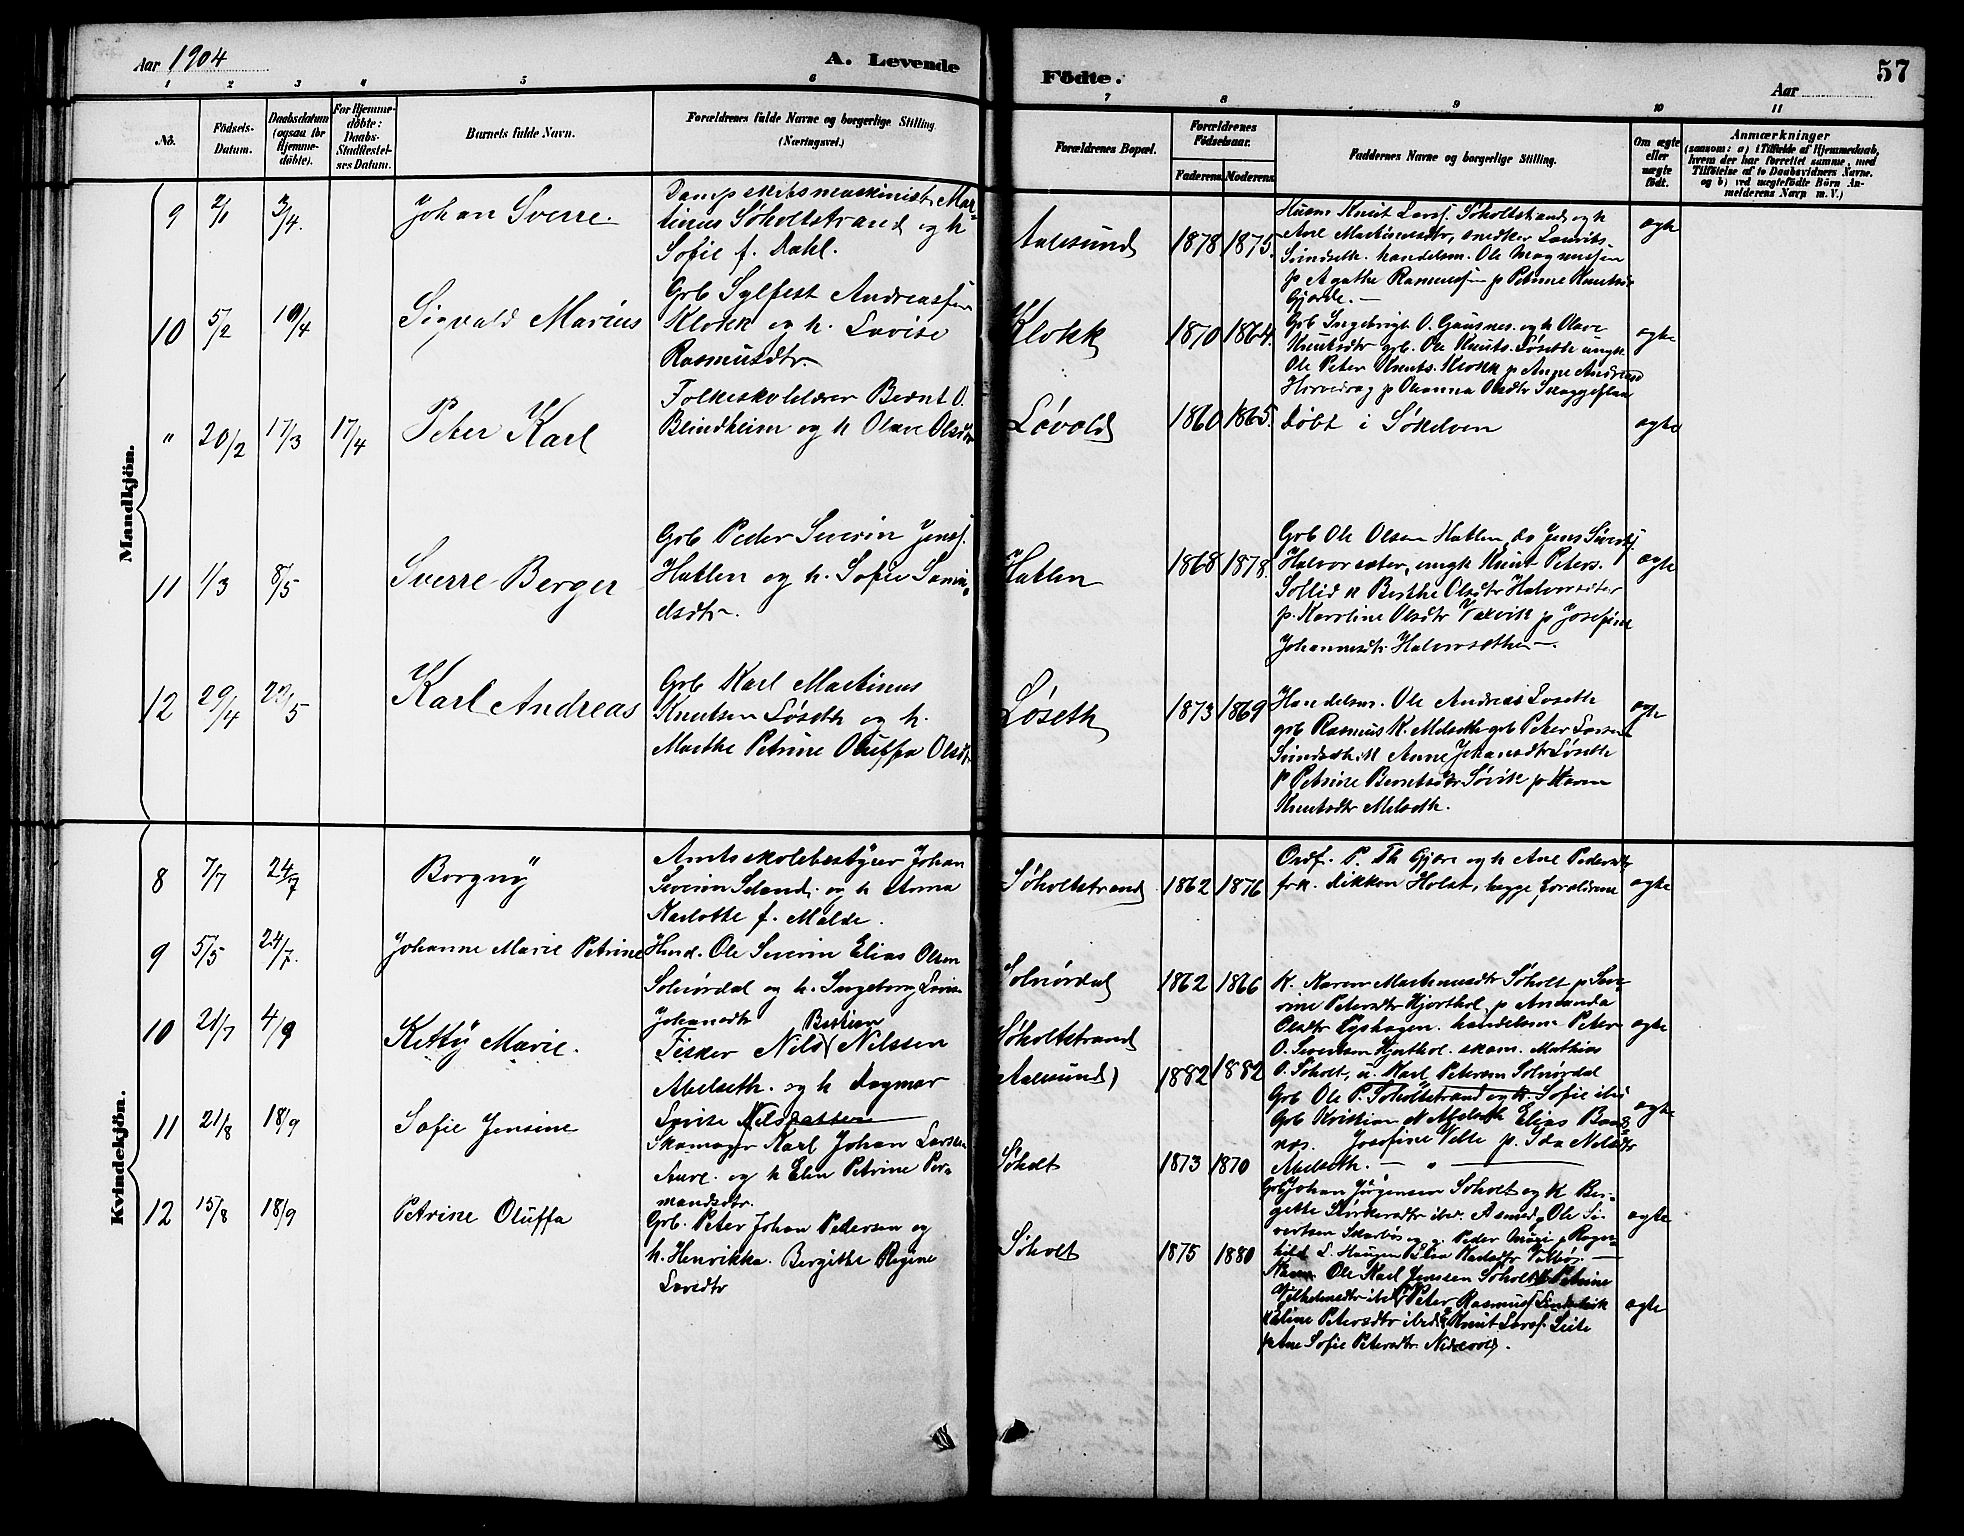 Aar 1904
A. Levende
Födte.
Aar
57
1 2 3 4 5 6 7 8 9 10 11
No.
Födsels-
Datum.
Daabsdatum
(ogsaa for
Hjemme-
döbte).
For Hjemme-
döbte:
Daabs-
Stadfæstel-
ses Datum.
Barnets fulde Navn.
Forældrenes fulde Navne og borgerlige Stilling
(Næringsvei.)
Forældrenes Bopæl.
Forældrenes
Födselsaar.
Faderens. Moderens.
Faddernes Navne og borgerlige Stilling.
Om ægte
eller
uægte
födt.
Anmærkninger
(saasom: a) i Tilfælde af Hjemmedaab,
hvem der har forrettet samme, med
Tilföielse af to Daabsvidners Navne.
og b) ved uægtefödte Börn An-
melderens Navn m. V.)
Mandkjön.
9 2/1 3/4. Johan Sverre.
Dampskibsmaskinist Mar-
tinus Søholtstrand og h
Sofie f. Dahl.
Aalesund 1878 1875.
Husm Knut Larss. Søholtstrand og h
Ane Martinusdtr, snedker Laurits
handelsm. Ole Magnussen
p Agathe p Petrine Knutsd
Gjørde. —
ægte
10 5/2 10/4 Sigvald Marius
Grb Sylfest Andreassen
Klokk og h. Lovise
Rasmusdtr.
Klokk 1870 1864.
Grb Ingebrigt O. Gausnes. og h Olave
Knutsdtr grb. Ole Knuts. Løseth ungk
Ole Peter Knuts. Klokk p Anne
p Oleanna Olsdtr
ægte
" 20/2 17/3 17/4 Peter Karl
Folkeskolelærer Bernt O.
Blindheim og h Olave Olsdtr
Løvold 1860 1865.
Døbt i Søkelven
ægte
11 1/3 8/5 Sverre Berger
Grb Peder Severin Jenss.
Hatlen og h. Sofie
dsdtr.
Hatlen 1868 1878.
Grb Ole Olsen Hatlen, do Jens
Halvorsæter, ungk Knut Peters.
Sollid k Berthe Olsdtr Halvorsæter
p. Karoline Olsdtr Vaxvik p Josefine
Johannesdtr Halvorsæther —.
ægte
12 29/4 22/5 Karl Andreas
Grb Karl Martinus
Knutsen Løseth og h.
Marthe Petrine Oluffa Olsdtr
Løseth 1873 1869
Handelsm. Ole Andreas Løseth
grb Rasmus K. Melseth grb Peter Larsen
k Anne Johansdtr Løseth
p Petrine Berntsdtr Søvik p Karen
Knutsdtr Melseth.
ægte
Kvindekjön.
8 7/7 24/7 Borgny
Amtsskolebestyrer Johan
Severin og h Anna
Karlotte f. Molde.
Søholtstrand 1862 1876
Ordf. P. Th Gjære og h Ane Pedersdtr
frk. Dikken Holst, begge forældrene
ægte
9 5/5 24/7. Johanne Marie Petrine
Hmd. Ole Severin Elias Olsen
Solnørdal og h. Ingeborg Lovise
Johansdtr
Solnørdal 1862 1866
k. Karen Martinusdtr Søholt p Seve-
rine Petersdtr Hjorthol p Amanda
Olsdtr Lyshagen. handelsm Peter
O. Sivertsen Hjorthol. skom. Mathias
O. Søholt, u. Karl Petersen Solnørdal
ægte
10 21/7 4/9 Ketty Marie.
Fisker Nils Bastian Nilssen
Abelseth. og h Dagmar
Lovise
Søholtstrand
Aalesund) 1882 1882
Grb Ole P. Søholtstrand og k. Sofie ibd
Grb Kristian N Abelseth Elias
nes. Josefine Velle p. Ida Nilsdtr
Abelseth. — " —
ægte
11 21/8 18/9 Sofie Jensine
Skomager Karl Johan Larsen
Aure. og h Elen Petrine Per-
mandsdtr.
Søholt 1873 1870
Grb Johan Jørgensen Søholt og k Ber-
gette ibd. Ole Si-
vertsen Skarbø og g. Peder
L. Haugen
ægte
12 15/8 18/9 Petrine Oluffa
Grb. Peter Johan Pedersen og
h. Henrikka. Bergithe Regine
Larsdtr
Søholt 1875 1880
Ole Karl Jenssen Søholt k Petrine
Vilhelmsdtr ibd Peter Rasmuss
Eline Petersdtr ibd Knut Larss. Leite
p Ane Sofie Petersdtr
ægte